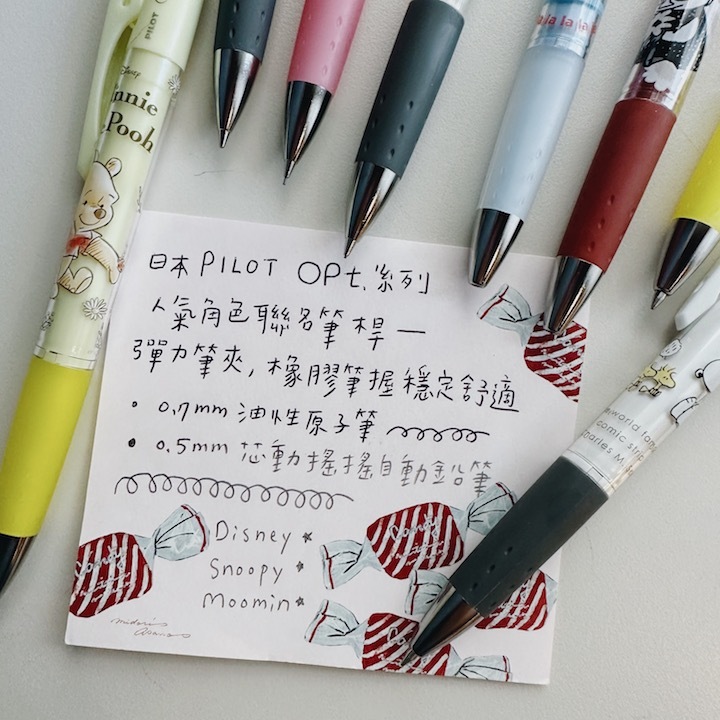 PILOT
Disney
Winnie
Pooh
la la la
日本 PILOT OPt. 系列
人氣角色聯名筆桿—
彈力筆夾, 橡膠筆握穩定舒適
• 0.7mm 油性原子筆
• 0.5mm 芯動搖搖自動鉛筆
Disney
Snoopy
Moomin
Candy
Candy
comic strip